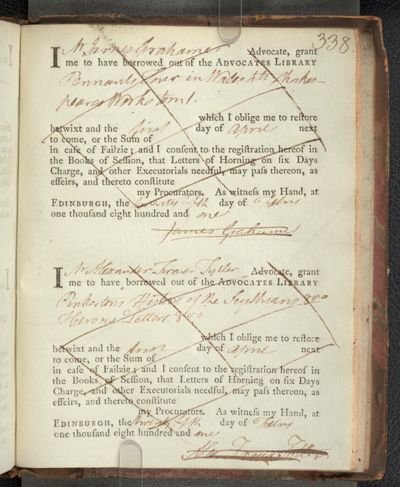 338.
I Mr James Grahame Advocate, grant
me to have borrowed out of the ADVOCATES LIBRARY
Pennants Tour in Wales 4to Shakes-
peares Works tom 1.
which I oblige me to restore
betwixt and the first day of April next
to come, or the Sum of
in case of Failzie; and I consent to the registration hereof in
the Books of Session, that Letters of Horning on six Days
Charge, and other Executorials needful, may pass thereon, as
effeirs, and thereto constitute
my Procurators. As witness my Hand, at
EDINBURGH, the day of
one thousand eight hundred and one
James Grahame
I Mr Alexander Fraser Tytler Advocate, grant
me to have borrowed out of the ADVOCATES LIBRARY
Pinkertons History of the Scythians 8vo
Herons Letters 8vo
which I oblige me to restore
betwixt and the first day of April next
to come, or the Sum of
in case of Failzie; and I consent to the registration hereof in
the Books of Session, that Letters of Horning on six Days
Charge, and other Executorials needful, may pass thereon, as
effeirs, and thereto constitute
my Procurators. As witness my Hand, at
EDINBURGH, the day of
one thousand eight hundred and one
Alex Fraser Tytler